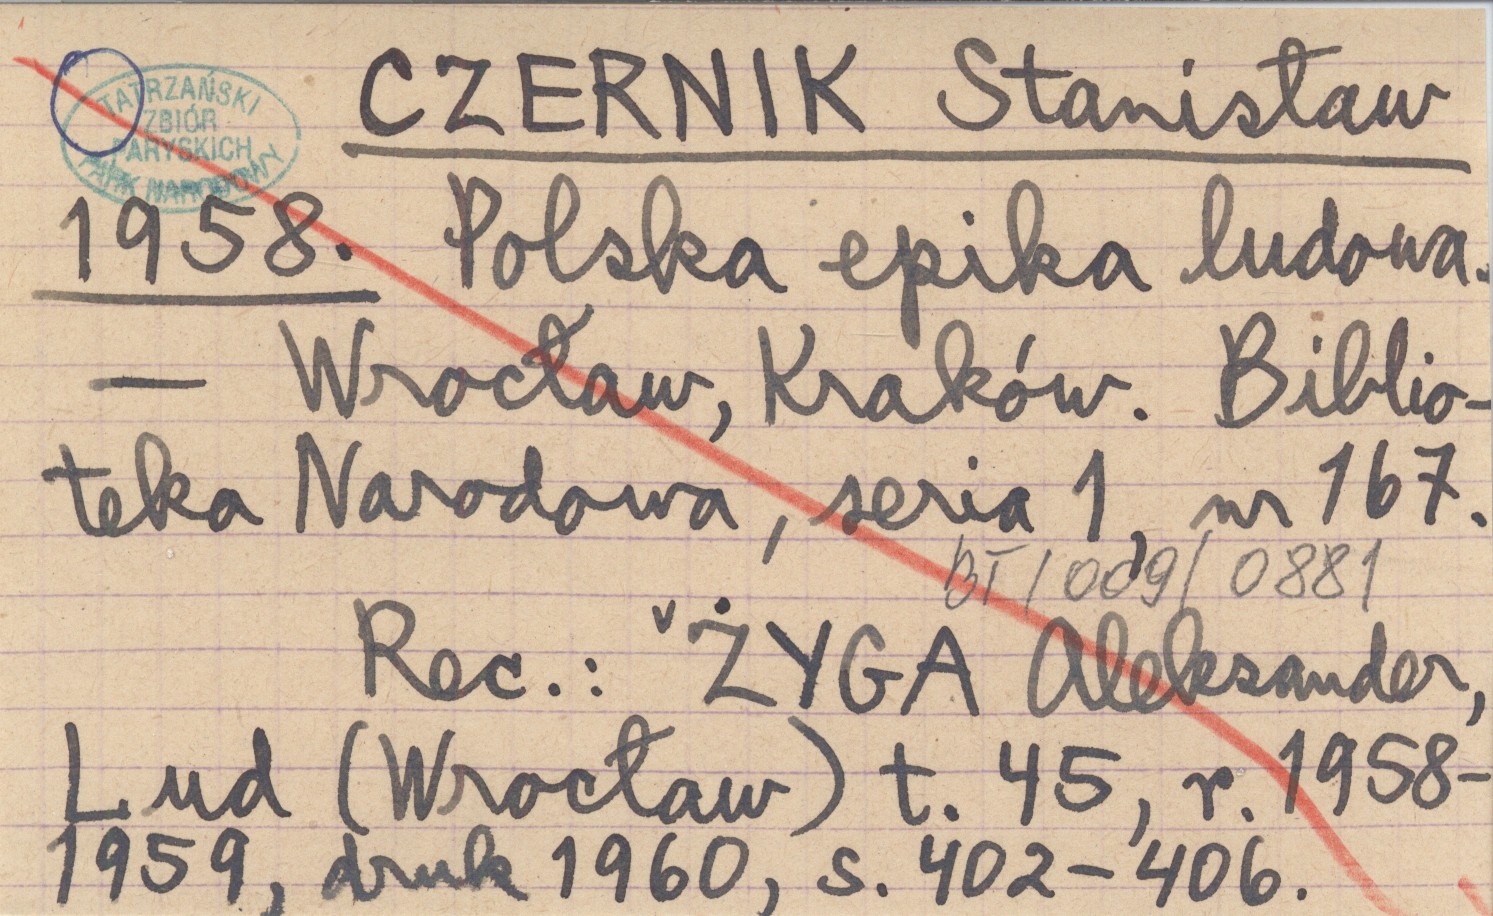 TATRZAŃSKI
ZBIÓR
PARYSKICH
PARK NARODOWY
CZERNIK Stanisław
1958. Polska epika ludowa.
— Wrocław, Kraków. Biblio-
teka Narodowa, seria 1, nr 167.
BT/009/0881
Rec.: ˇŻYGA Aleksander,
Lud (Wrocław) t. 45, r. 1958-
1959, druk 1960, s. 402-406.